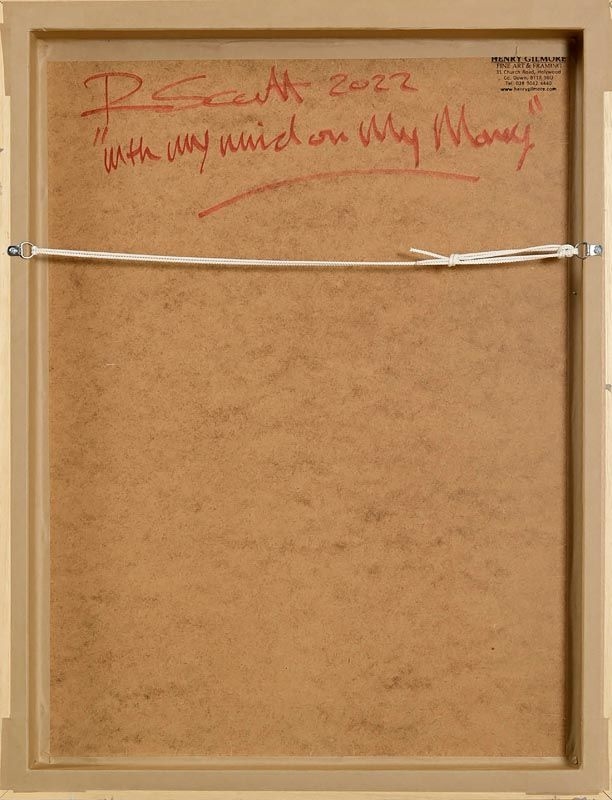 R Scott 2022
"with my mind on My Money"
HENRY GILMORE
FINE ART & FRAMING
31 Church Road, Holywood
Co. Down, BT18 9BU
Tel: 028 9042 4440
www.henrygilmore.com